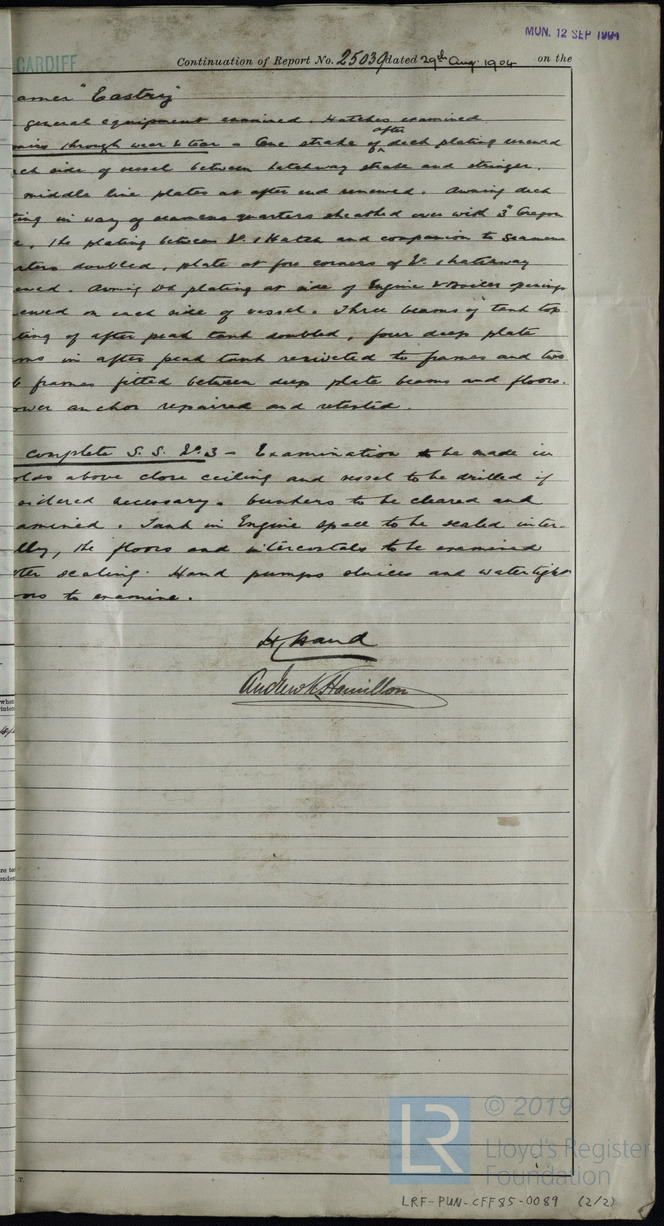 MON. 12 SEP 1904
CARDIFF
Continuation of Report No. 25039 dated 29th Aug. 1904 on the
amer "Eastry"
general equipment examined. Hatches examined
airs through wear & tear - One strake of after deck plating renewed
ch side of vessel between hatchway strake and stringer.
middle line plates at after end renewed. Awning deck
ting in way of seamens quarters sheathed over with 3" Oregon
e. The plating between No. 1 Hatch and companion to Seamens
rters doubled, plate at fore corners of No. 1 hatchway
ewed. Awning Dk plating at side of Engine & Boiler openings
ewed on each side of vessel. Three beams of tank top
ting of after peak tank doubled, four deep plate
ms in after peak tank reriveted to frames and two
b frames fitted between deep plate beams and floors.
ower anchor repaired and retested.
complete S.S. No. 3 - Examination to be made in
olds above close ceiling and vessel to be drilled if
sidered necessary. bunkers to be cleared and
amined. Tank in Engine space to be scaled inter-
lly, the floors and intercostals to be examined
ter scaling. Hand pumps sluices and watertight
ors to examine.
H. Hand
Andrew K Hamilton
© 2019
LR
Lloyd's Register
Foundation
LRF-PUN-CFF85-0089 (2/2)